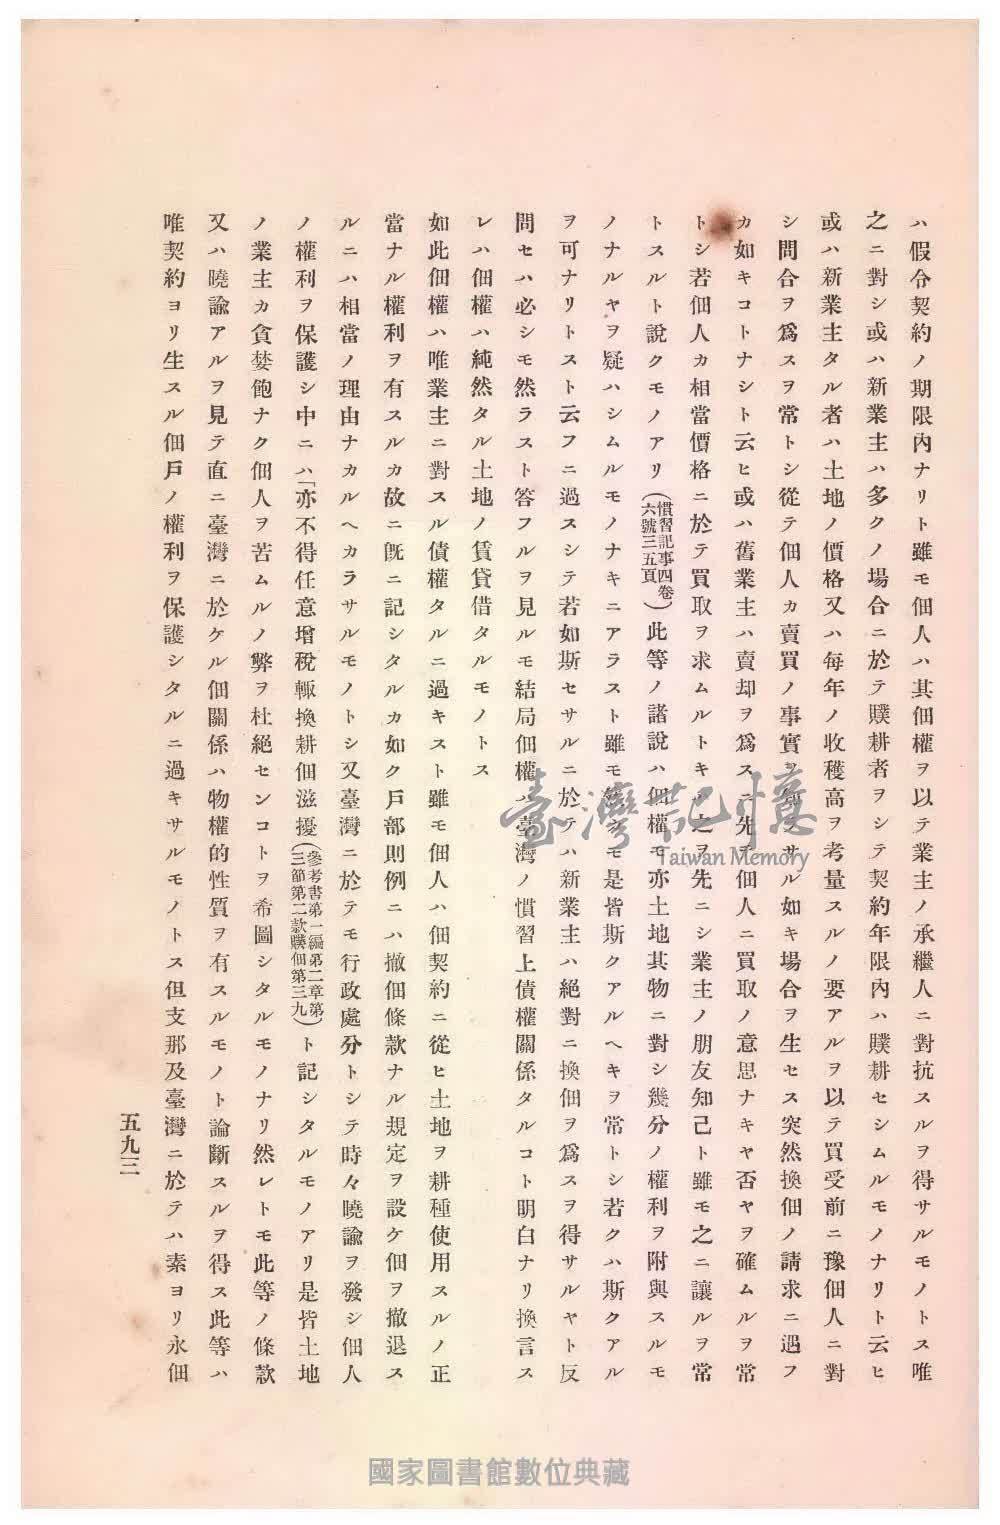 ハ假令契約ノ期限內ナリト雖モ佃人ハ其佃權ヲ以テ業主ノ承繼人ニ對抗スルヲ得サルモノトス唯
之ニ對シ或ハ新業主ハ多クノ場合ニ於テ贌耕者ヲシテ契約年限內ハ贌耕セシムルモノナリト云ヒ
或ハ新業主タル者ハ土地ノ價格又ハ每年ノ收穫高ヲ考量スルノ要アルヲ以テ買受前ニ豫佃人ニ對
シ問合ヲ爲スヲ常トシ從テ佃人カ賣買ノ事實ヲ知ラサル如キ場合ヲ生セス突然換佃ノ請求ニ遇フ
カ如キコトナシト云ヒ或ハ舊業主ハ賣却ヲ爲スニ先チ佃人ニ買取ノ意思ナキヤ否ヤヲ確ムルヲ常
トシ若佃人カ相當價格ニ於テ買取ヲ求ムルトキハ之ヲ先ニシ業主ノ朋友知己ト雖モ之ニ讓ルヲ常
トスルト說クモノアリ(慣習記事四卷六號三五頁)此等ノ諸說ハ佃權モ亦土地其物ニ對シ幾分ノ權利ヲ附與スルモ
ノナルヤヲ疑ハシムルモノナキニアラスト雖モ然レモ是皆斯クアルヘキヲ常トシ若クハ斯クアル
ヲ可ナリトスト云フニ過スシテ若如斯セサルニ於テハ新業主ハ絕對ニ換佃ヲ爲スヲ得サルヤト反
問セハ必シモ然ラスト答フルヲ見ルモ結局佃權ハ臺灣ノ慣習上債權關係タルコト明白ナリ換言ス
レハ佃權ハ純然タル土地ノ賃貸借タルモノトス
如此佃權ハ唯業主ニ對スル債權タルニ過キスト雖モ佃人ハ佃契約ニ從ヒ土地ヲ耕種使用スルノ正
當ナル權利ヲ有スルカ故ニ旣ニ記シタルカ如ク戶部則例ニハ撤佃條款ナル規定ヲ設ケ佃ヲ撤退ス
ルニハ相當ノ理由ナカルヘカラサルモノトシ又臺灣ニ於テモ行政處分トシテ時々曉諭ヲ發シ佃人
ノ權利ヲ保護シ中ニハ「亦不得任意增稅輙換耕佃滋擾(參考書第一編第二章第三節第二款贌佃第三九)ト記シタルモノアリ是皆土地
ノ業主カ貪婪飽ナク佃人ヲ苦ムルノ弊ヲ杜絕センコトヲ希圖シタルモノナリ然レトモ此等ノ條款
又ハ曉諭アルヲ見テ直ニ臺灣ニ於ケル佃關係ハ物權的性質ヲ有スルモノト論斷スルヲ得ス此等ハ
唯契約ヨリ生スル佃戶ノ權利ヲ保護シタルニ過キサルモノトス但支那及臺灣ニ於テハ素ヨリ永佃
五九三
臺灣記憶
Taiwan Memory
國家圖書館數位典藏